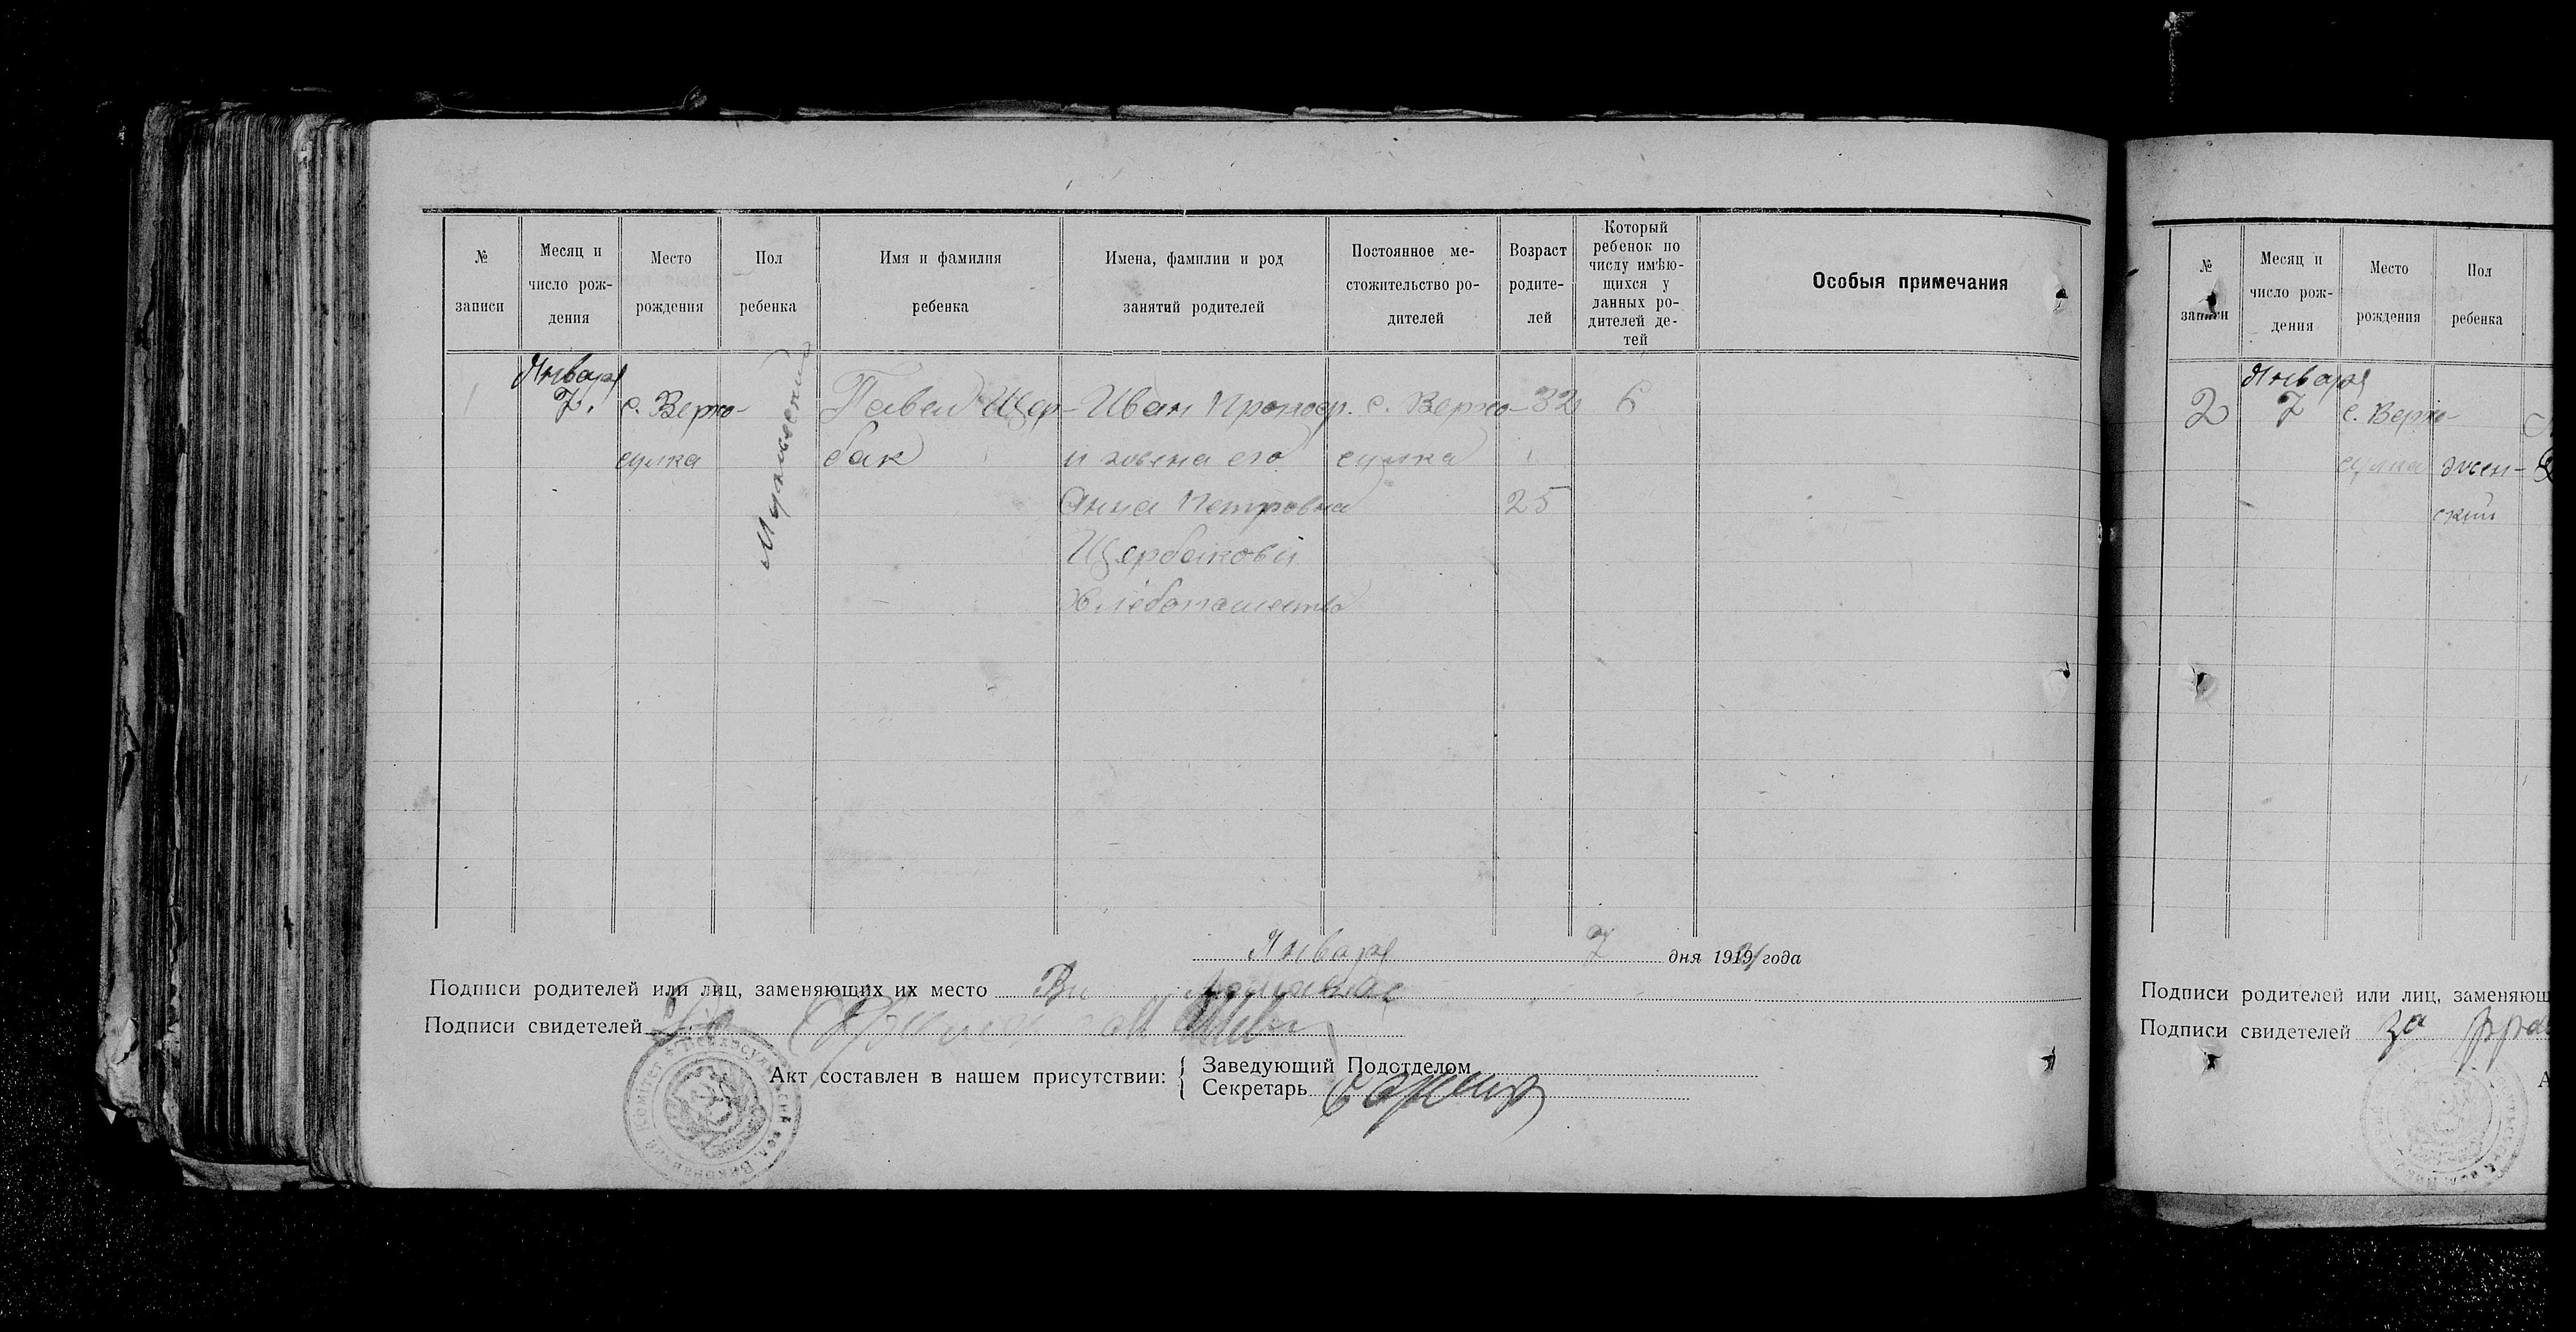 № записи
Месяц и число рождения
Место рождения
Пол ребенка
Имя и фамилия ребенка
Имена, фамилии и род занятий родителей
Постоянное местожительство родителей
Возраст родителей
Который ребенок по числу имѣющихся у данных родителей детей
Особыя примечания
1
Января
7.
с. Верхо-
сулка
Мужеский
Павел Щер-
бак
Иван Прокоф.
и жена его
Анна Петровна
Щербаковы
Хлебопашество
с. Верхо-
сулка
32
25
6
Января 7 дня 1921 года
Подписи родителей или лиц, заменяющих их место
Подписи свидетелей
Акт составлен в нашем присутствии:
Заведующий Подотделом
Секретарь
№ записи
Месяц и число рождения
Место рождения
Пол ребенка
2
Января
7
с. Верхо-
сулка
жен-
ский
Подписи родителей или лиц, заменяющ
Подписи свидетелей за